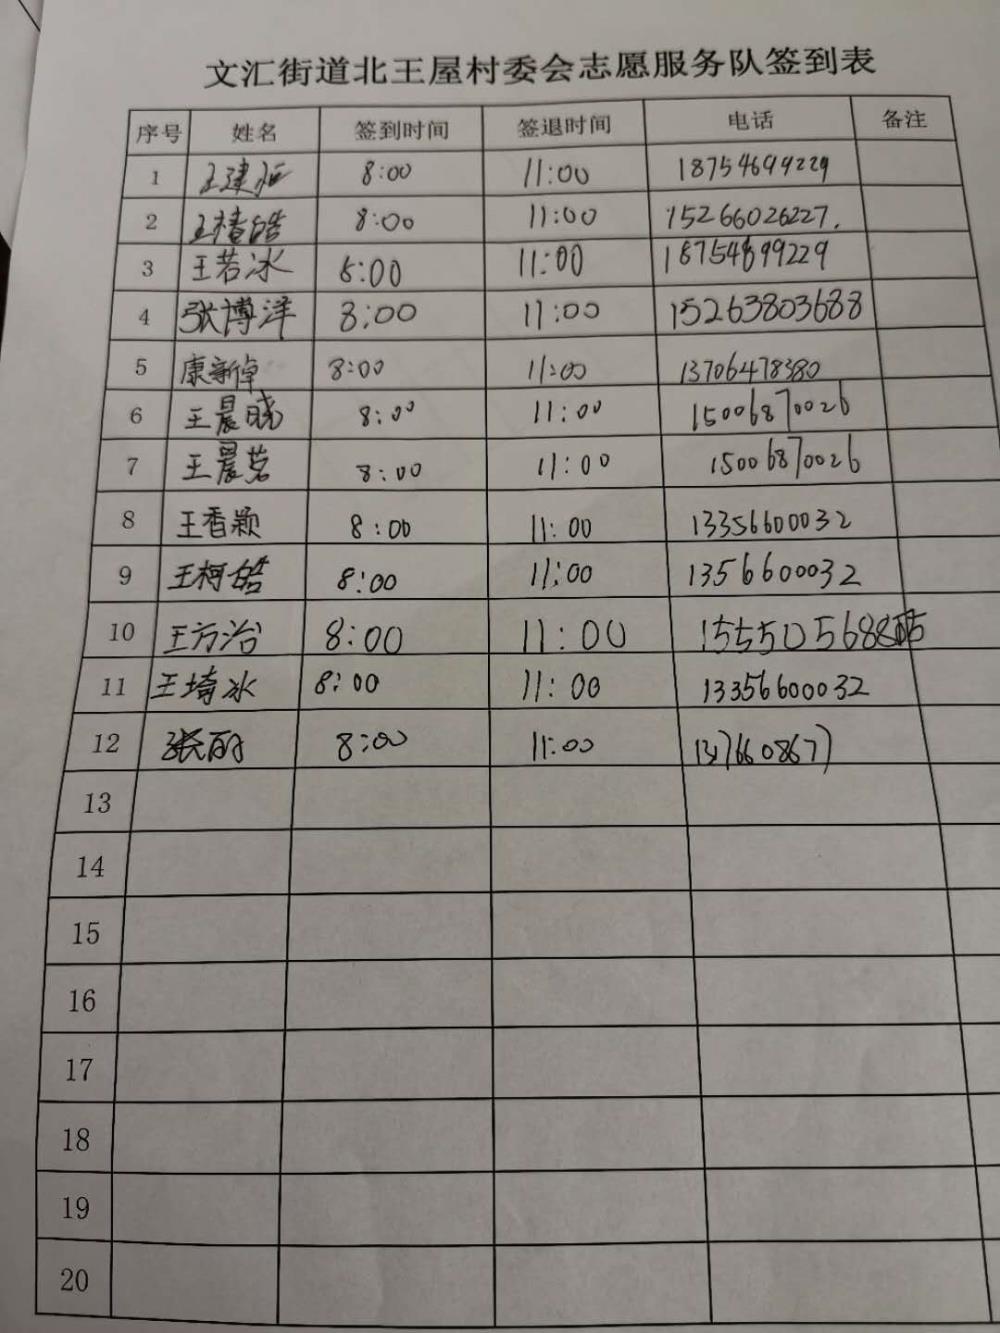 文汇街道北王屋村委会志愿服务队签到表
序号 姓名 签到时间 签退时间 电话 备注
1 王建恒 8:00 11:00 18754699229
2 王楮皓 8:00 11:00 15266026227.
3 王若冰 8:00 11:00 18754899229
4 张博洋 8:00 11:00 15263803688
5 康新倬 8:00 11:00 13706478380
6 王晨晓 8:00 11:00 15006870026
7 王晨茗 8:00 11:00 15006870026
8 王香颖 8:00 11:00 13356600032
9 王柯皓 8:00 11:00 1356600032
10 王方治 8:00 11:00 155505688
11 王埼冰 8:00 11:00 13356600032
12 张 8:00 11:00
13
14
15
16
17
18
19
20